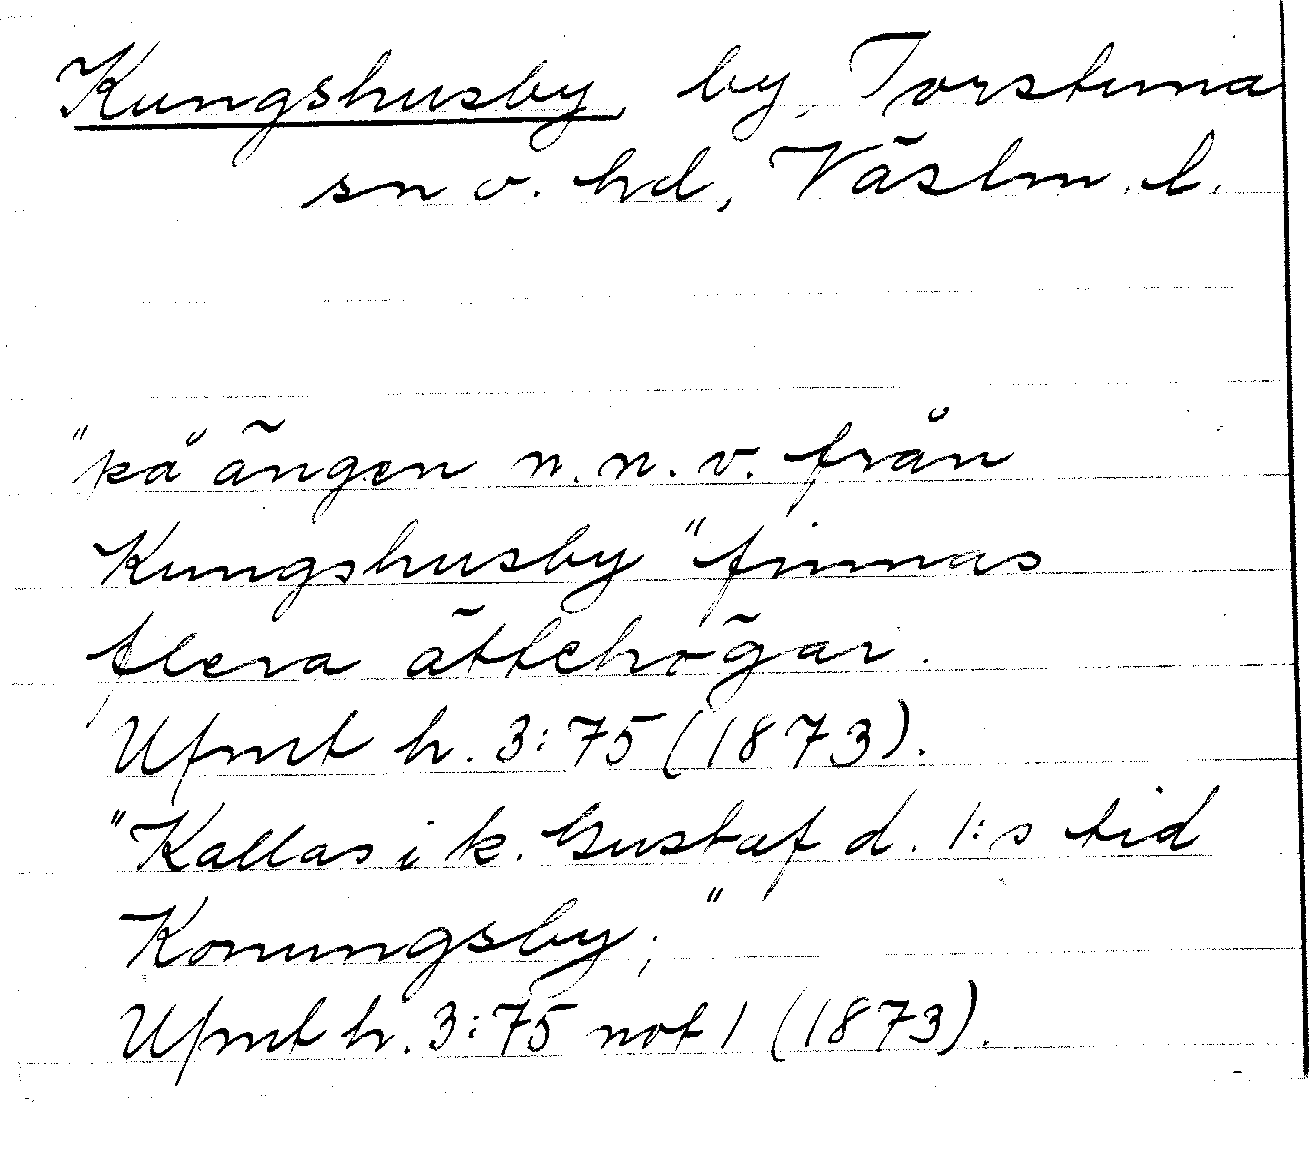 Kungshusby, by, Torstuna
sn o. hd, Västm. l.
"på ängen n.n.v. från
Kungshusby" finnas
flera ättehögar.
Ufmt h. 3:75 (1873).
"Kallas i k. Gustaf d. 1:s tid
Konungsby;"
Ufmt h. 3:75 not 1 (1873).